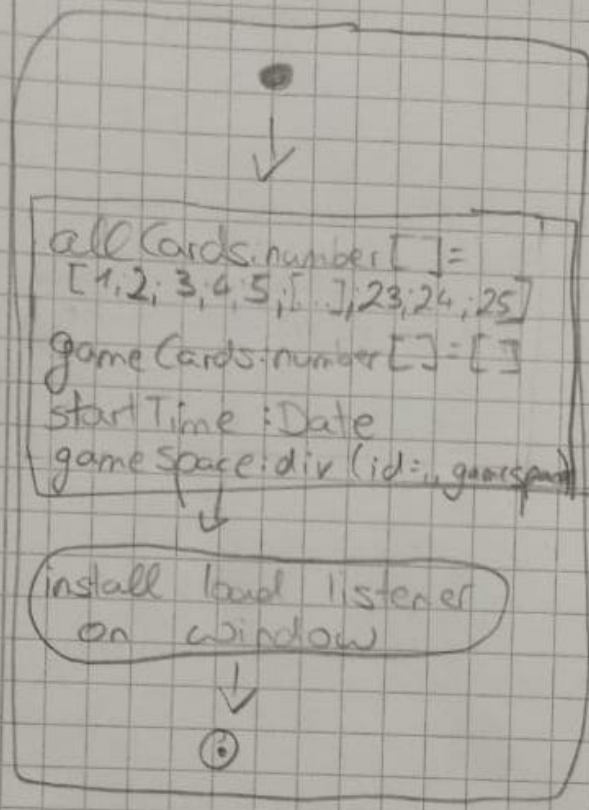 allCards:number[]=
[1;2; 3;4;5;[..];23;24;25]
gameCards:number[]=[]
startTime:Date
gamespace:div(id=„
install load listener
on window